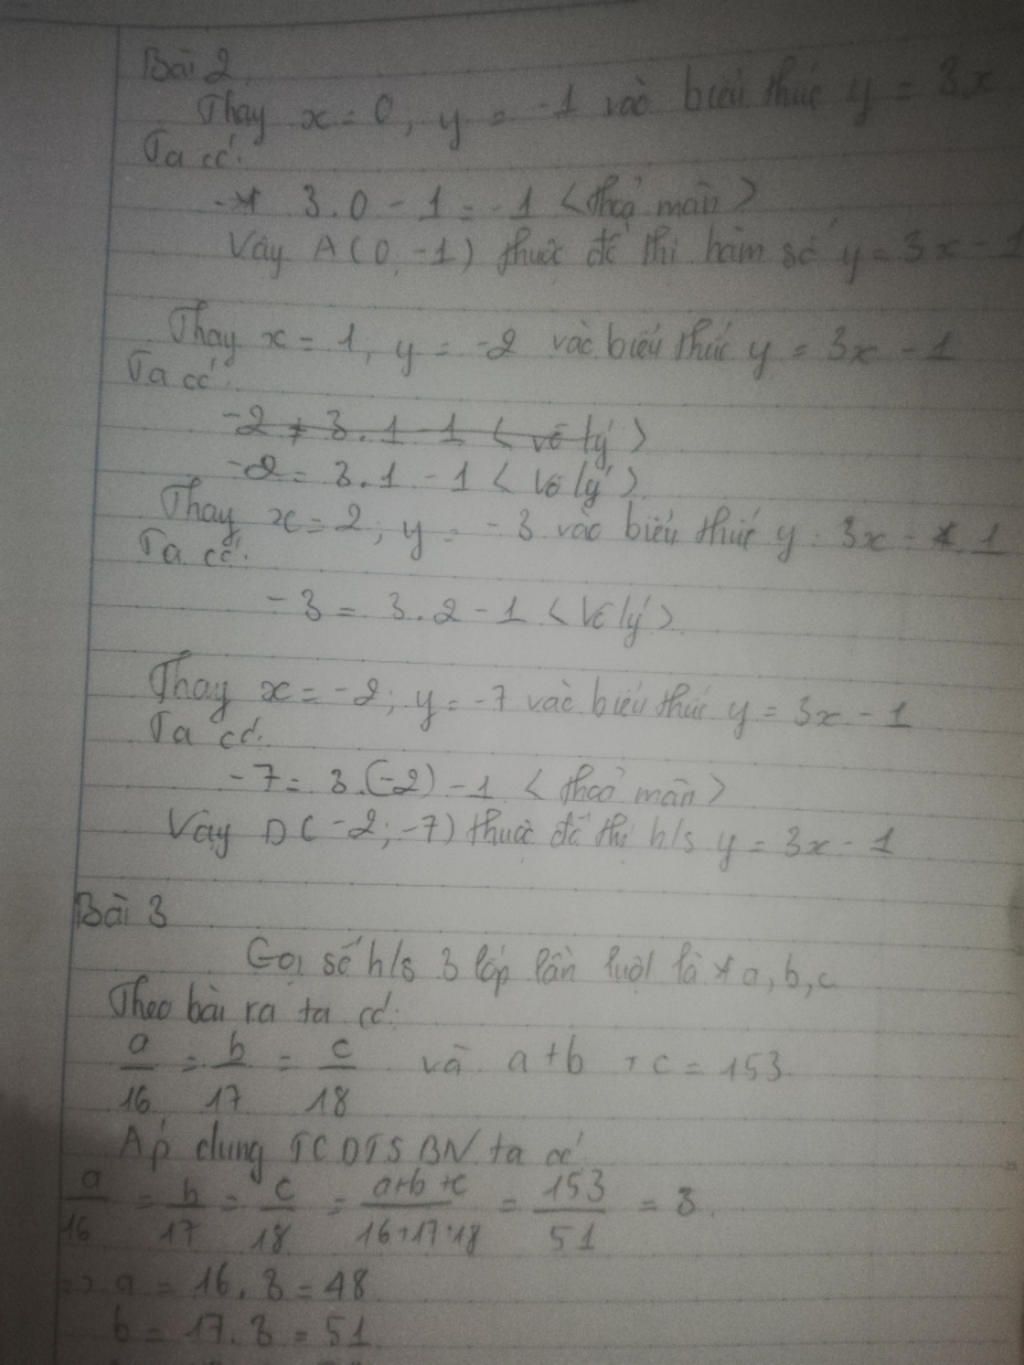 Bài 2
Thay x = 0, y = -1 vào biểu thức y = 3x
Ta có:
3.0 - 1 = -1 <thỏa mãn>
Vậy A(0, -1) thuộc đồ thị hàm số y = 3x - 1
Thay x = 1, y = -2 vào biểu thức y = 3x - 1
Ta có:
-2 ≠ 3.1 - 1 <vô lý>
-2 = 3.1 - 1 <Vô lý>
Thay x = 2; y = -3 vào biểu thức y = 3x - 1
Ta có:
-3 = 3.2 - 1 <Vô lý>
Thay x = -2; y = -7 vào biểu thức y = 3x - 1
Ta có:
-7 = 3.(-2) - 1 <thỏa mãn>
Vậy D(-2; -7) thuộc đồ thị h/s y = 3x - 1
Bài 3
Gọi số h/s 3 lớp lần lượt là a, b, c
Theo bài ra ta có:
a/16 = b/17 = c/18 và a+b+c = 153
Áp dụng TCDTSBN ta có
a/16 = b/17 = c/18 = a+b+c/16+17+18 = 153/51 = 3.
=> a = 16.3 = 48
b = 17.3 = 51